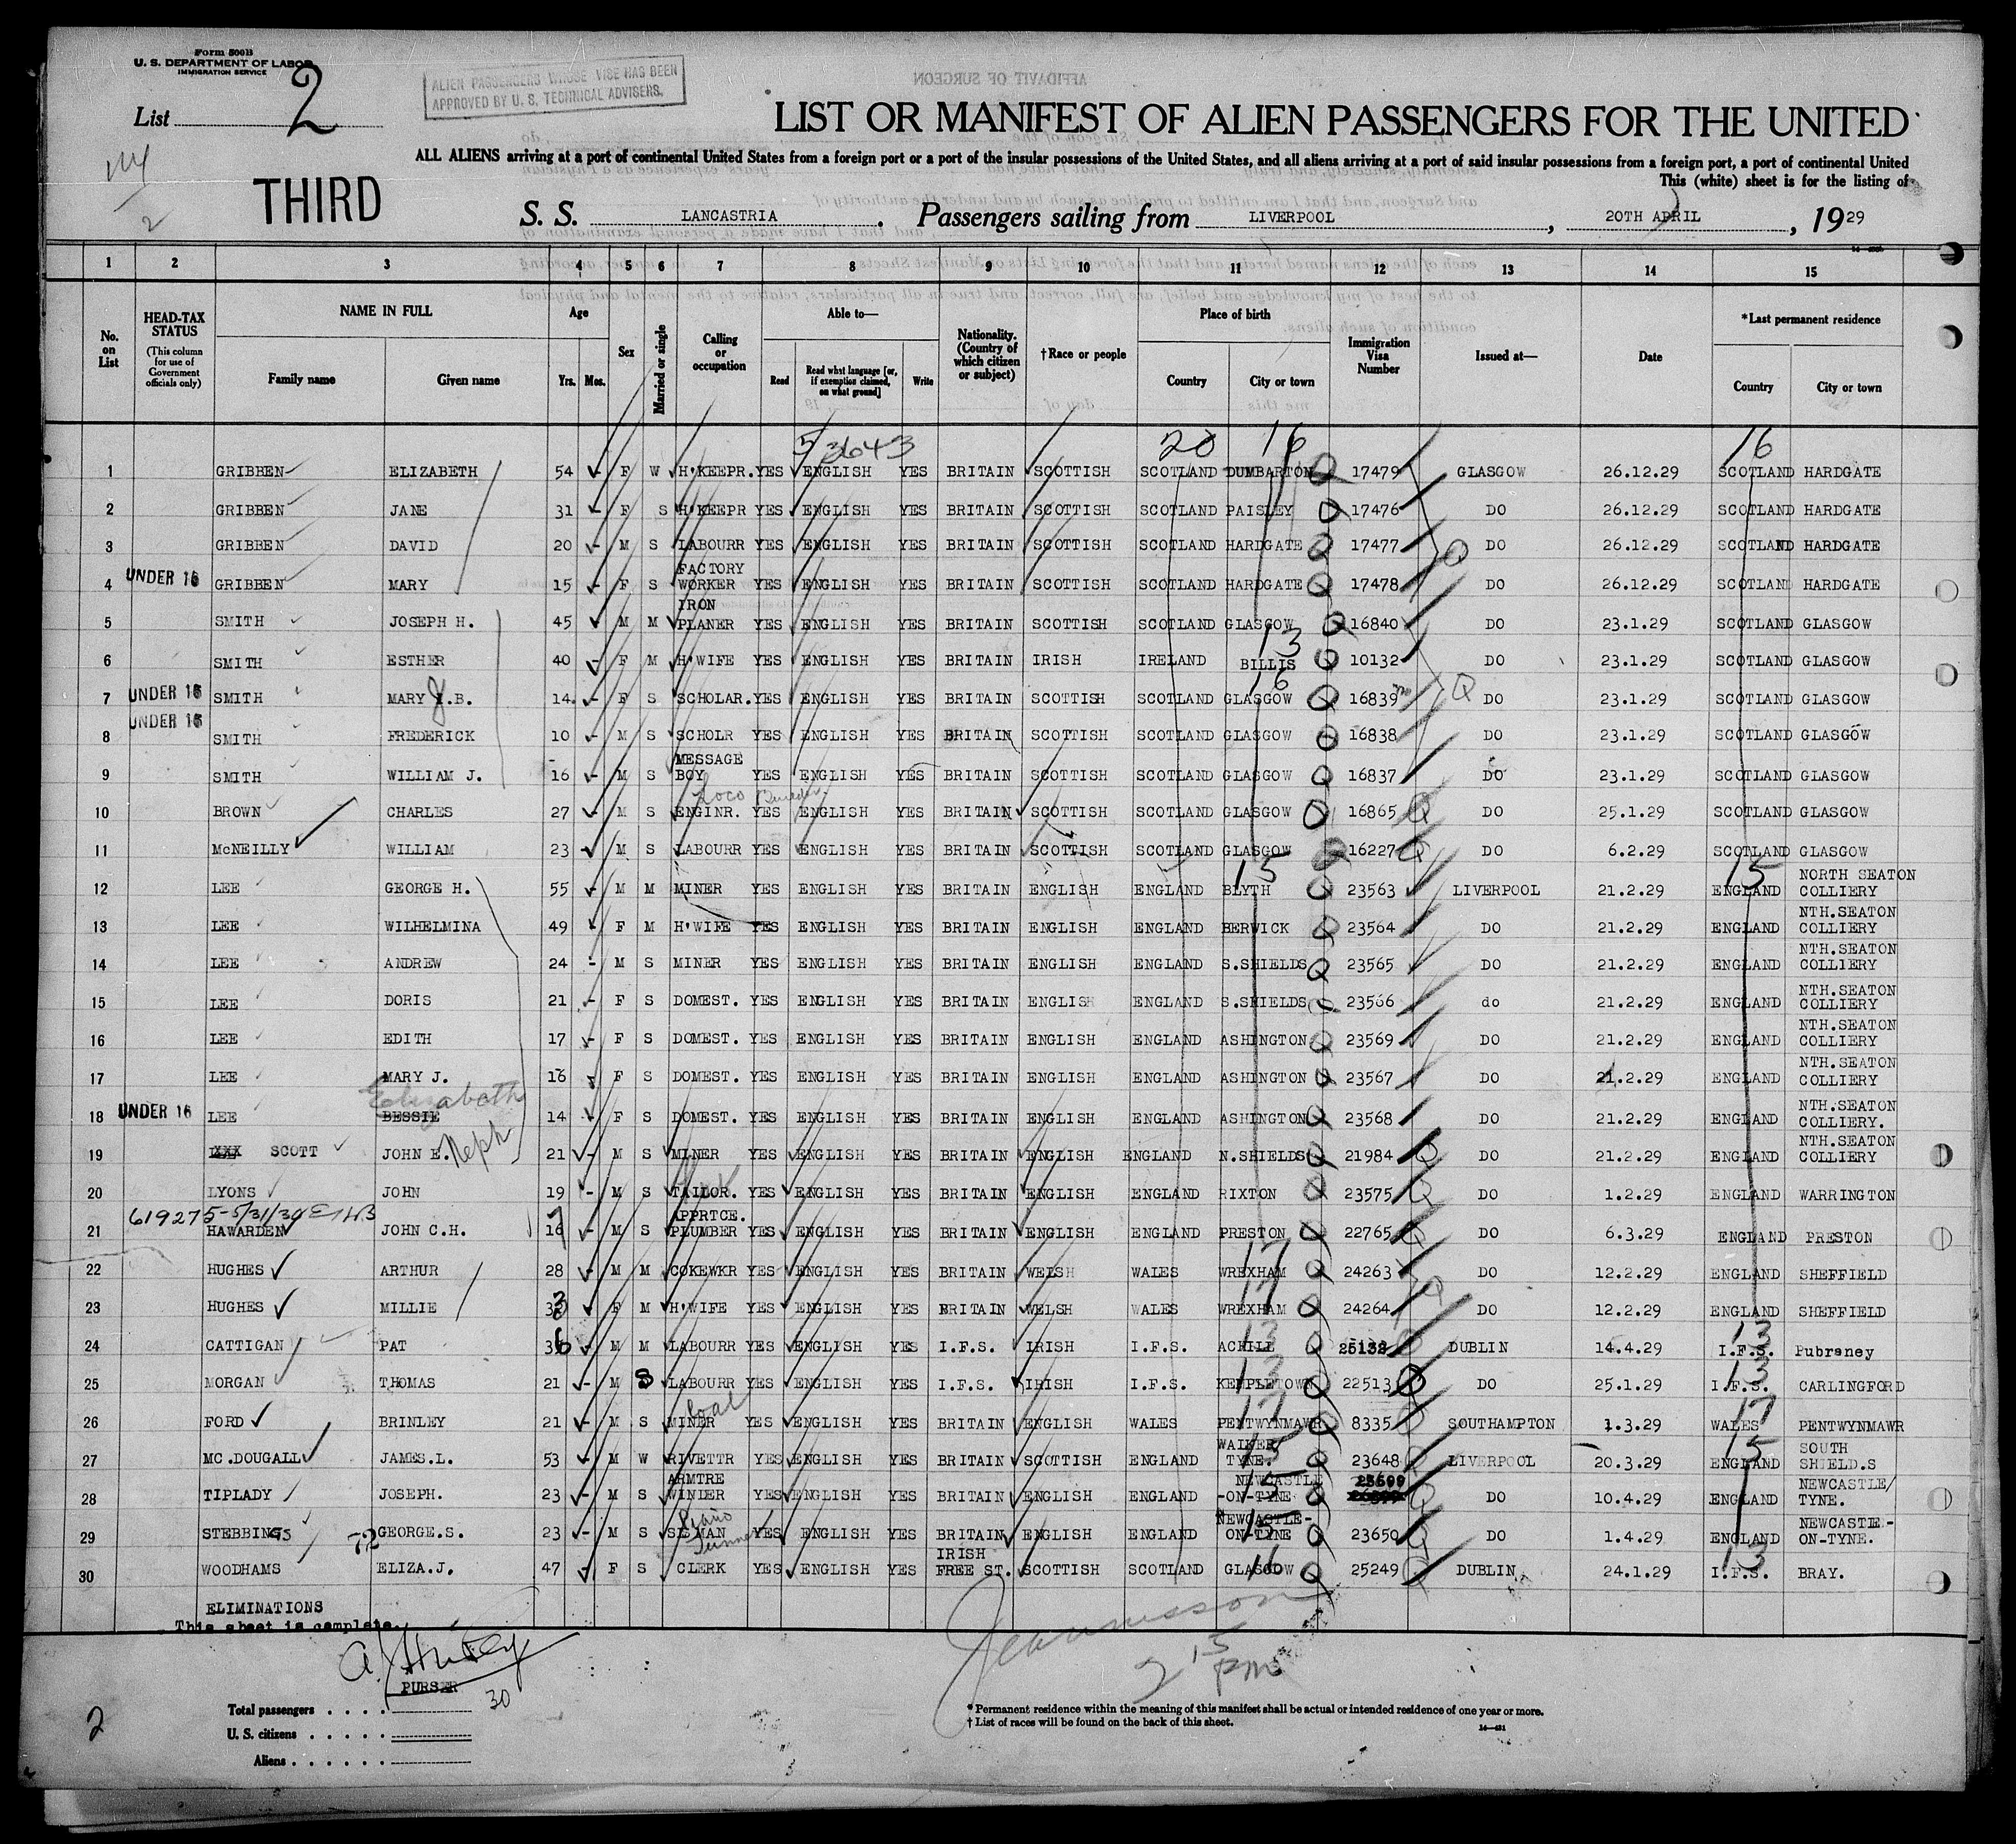 Form 500B
U. S. DEPARTMENT OF LABOR
IMMIGRATION SERVICE
ALIEN PASSENGERS WHOSE VISE HAS BEEN
APPROVED BY U. S. TECHNICAL ADVISERS.
List 2
LIST OR MANIFEST OF ALIEN PASSENGERS FOR THE UNITED
ALL ALIENS arriving at a port of continental United States from a foreign port or a port of the insular possessions of the United States, and all aliens arriving at a port of said insular possessions from a foreign port, a port of continental United
This (white) sheet is for the listing of
THIRD
S. S. LANCASTRIA. Passengers sailing from LIVERPOOL, 20TH APRIL, 1929
1 2 3 4 5 6 7 8 9 10 11 12 13 14 15
No. on List
HEAD-TAX STATUS (This column for use of Government officials only)
NAME IN FULL Family name Given name
Age Yrs. Mos.
Sex
Married or single
Calling or occupation
Able to— Read Read what language [or, if exemption claimed, on what ground] Write
Nationality. (Country of which citizen or subject)
†Race or people
Place of birth Country City or town
Immigration Visa Number
Issued at—
Date
*Last permanent residence Country City or town
53643 20 16 16
1 GRIBBEN ELIZABETH 54 F W H'KEEPR. YES ENGLISH YES BRITAIN SCOTTISH SCOTLAND DUMBARTON 17479 GLASGOW 26.12.29 SCOTLAND HARDGATE
2 GRIBBEN JANE 31 F S H'KEEPR YES ENGLISH YES BRITAIN SCOTTISH SCOTLAND PAISLEY 17476 DO 26.12.29 SCOTLAND HARDGATE
3 GRIBBEN DAVID 20 M S LABOURR YES ENGLISH YES BRITAIN SCOTTISH SCOTLAND HARDGATE 17477 DO 26.12.29 SCOTLAND HARDGATE
4 UNDER 16 GRIBBEN MARY 15 F S FACTORY WORKER YES ENGLISH YES BRITAIN SCOTTISH SCOTLAND HARDGATE 17478 DO 26.12.29 SCOTLAND HARDGATE
5 SMITH JOSEPH H. 45 M M IRON PLANER YES ENGLISH YES BRITAIN SCOTTISH SCOTLAND GLASGOW 16840 DO 23.1.29 SCOTLAND GLASGOW
6 SMITH ESTHER 40 F M H'WIFE YES ENGLISH YES BRITAIN IRISH IRELAND 13 BILLIS 10132 DO 23.1.29 SCOTLAND GLASGOW
7 UNDER 16 SMITH MARY J.B. 14 F S SCHOLAR. YES ENGLISH YES BRITAIN SCOTTISH SCOTLAND 16 GLASGOW 16839 DO 23.1.29 SCOTLAND GLASGOW
8 UNDER 16 SMITH FREDERICK 10 M S SCHOLR YES ENGLISH YES BRITAIN SCOTTISH SCOTLAND GLASGOW 16838 DO 23.1.29 SCOTLAND GLASGOW
9 SMITH WILLIAM J. 16 M S MESSAGE BOY YES ENGLISH YES BRITAIN SCOTTISH SCOTLAND GLASGOW 16837 DO 23.1.29 SCOTLAND GLASGOW
10 BROWN CHARLES 27 M S Loco Builder ENGINR. YES ENGLISH YES BRITAIN SCOTTISH SCOTLAND GLASGOW 16865 DO 25.1.29 SCOTLAND GLASGOW
11 McNEILLY WILLIAM 23 M S LABOURR YES ENGLISH YES BRITAIN SCOTTISH SCOTLAND GLASGOW 16227 DO 6.2.29 SCOTLAND GLASGOW
12 LEE GEORGE H. 55 M M MINER YES ENGLISH YES BRITAIN ENGLISH ENGLAND 15 BLYTH 23563 LIVERPOOL 21.2.29 15 ENGLAND NORTH SEATON COLLIERY
13 LEE WILHELMINA 49 F M H'WIFE YES ENGLISH YES BRITAIN ENGLISH ENGLAND BERWICK 23564 DO 21.2.29 ENGLAND NTH.SEATON COLLIERY
14 LEE ANDREW 24 M S MINER YES ENGLISH YES BRITAIN ENGLISH ENGLAND S.SHIELDS 23565 DO 21.2.29 ENGLAND NTH.SEATON COLLIERY
15 LEE DORIS 21 F S DOMEST. YES ENGLISH YES BRITAIN ENGLISH ENGLAND S.SHIELDS 23566 do 21.2.29 ENGLAND NTH.SEATON COLLIERY
16 LEE EDITH 17 F S DOMEST. YES ENGLISH YES BRITAIN ENGLISH ENGLAND ASHINGTON 23569 DO 21.2.29 ENGLAND NTH.SEATON COLLIERY
17 LEE MARY J. 16 F S DOMEST. YES ENGLISH YES BRITAIN ENGLISH ENGLAND ASHINGTON 23567 DO 21.2.29 ENGLAND NTH.SEATON COLLIERY
18 UNDER 16 LEE Elizabeth BESSIE 14 F S DOMEST. YES ENGLISH YES BRITAIN ENGLISH ENGLAND ASHINGTON 23568 DO 21.2.29 ENGLAND NTH.SEATON COLLIERY.
19 XXX SCOTT JOHN E. Neph 21 M S MINER YES ENGLISH YES BRITAIN ENGLISH ENGLAND N.SHIELDS 21984 DO 21.2.29 ENGLAND NTH.SEATON COLLIERY
20 LYONS JOHN 19 M S TAILOR. YES ENGLISH YES BRITAIN ENGLISH ENGLAND RIXTON 23575 DO 1.2.29 ENGLAND WARRINGTON
21 HAWARDEN JOHN C.H. 16 M S APPRTCE. PLUMBER YES ENGLISH YES BRITAIN ENGLISH ENGLAND PRESTON 22765 DO 6.3.29 ENGLAND PRESTON
22 HUGHES ARTHUR 28 M M COKEWKR YES ENGLISH YES BRITAIN WELSH WALES 17 WREXHAM 24263 DO 12.2.29 ENGLAND SHEFFIELD
23 HUGHES MILLIE F M H'WIFE YES ENGLISH YES BRITAIN WELSH WALES 17 WREXHAM 24264 DO 12.2.29 ENGLAND SHEFFIELD
24 CATTIGAN PAT 36 M M LABOURR YES ENGLISH YES I.F.S. IRISH I.F.S. 13 ACHILL 25132 DUBLIN 14.4.29 13 I.F.S. Pubraney
25 MORGAN THOMAS 21 M S LABOURR YES ENGLISH YES I.F.S. IRISH I.F.S. 13 KEMPLETOWN 22513 DO 25.1.29 13 I.F.S. CARLINGFORD
26 FORD BRINLEY 21 M S Coal MINER YES ENGLISH YES BRITAIN ENGLISH WALES 17 PENTWYNMAWR 8335 SOUTHAMPTON 1.3.29 17 WALES PENTWYNMAWR
27 MC.DOUGALL JAMES.L. 53 M W RIVETTR YES ENGLISH YES BRITAIN SCOTTISH ENGLAND 15 WALKER TYNE. 23648 LIVERPOOL 20.3.29 15 ENGLAND SOUTH SHIELD.S
28 TIPLADY JOSEPH. 23 M S ARMTRE WINDER YES ENGLISH YES BRITAIN ENGLISH ENGLAND 15 NEWCASTLE -ON-TYNE DO 10.4.29 ENGLAND NEWCASTLE/ TYNE.
29 STEBBINGS GEORGE.S. 23 M S Piano Tunner SLSMAN YES ENGLISH YES BRITAIN ENGLISH 15 NEWCASTLE- ON-TYNE 23650 DO 1.4.29 ENGLAND NEWCASTLE- ON-TYNE.
30 WOODHAMS 72 ELIZA.J. 47 F S CLERK YES ENGLISH YES IRISH FREE ST. SCOTTISH SCOTLAND 16 GLASGOW 25249 DUBLIN 24.1.29 13 I.F.S. BRAY.
ELIMINATIONS
This sheet is complete.
PURSER
Total passengers . . . . 30
U. S. citizens . . . . .
Aliens . . . . . .
2
2 15 PM
* Permanent residence within the meaning of this manifest shall be actual or intended residence of one year or more.
† List of races will be found on the back of this sheet.